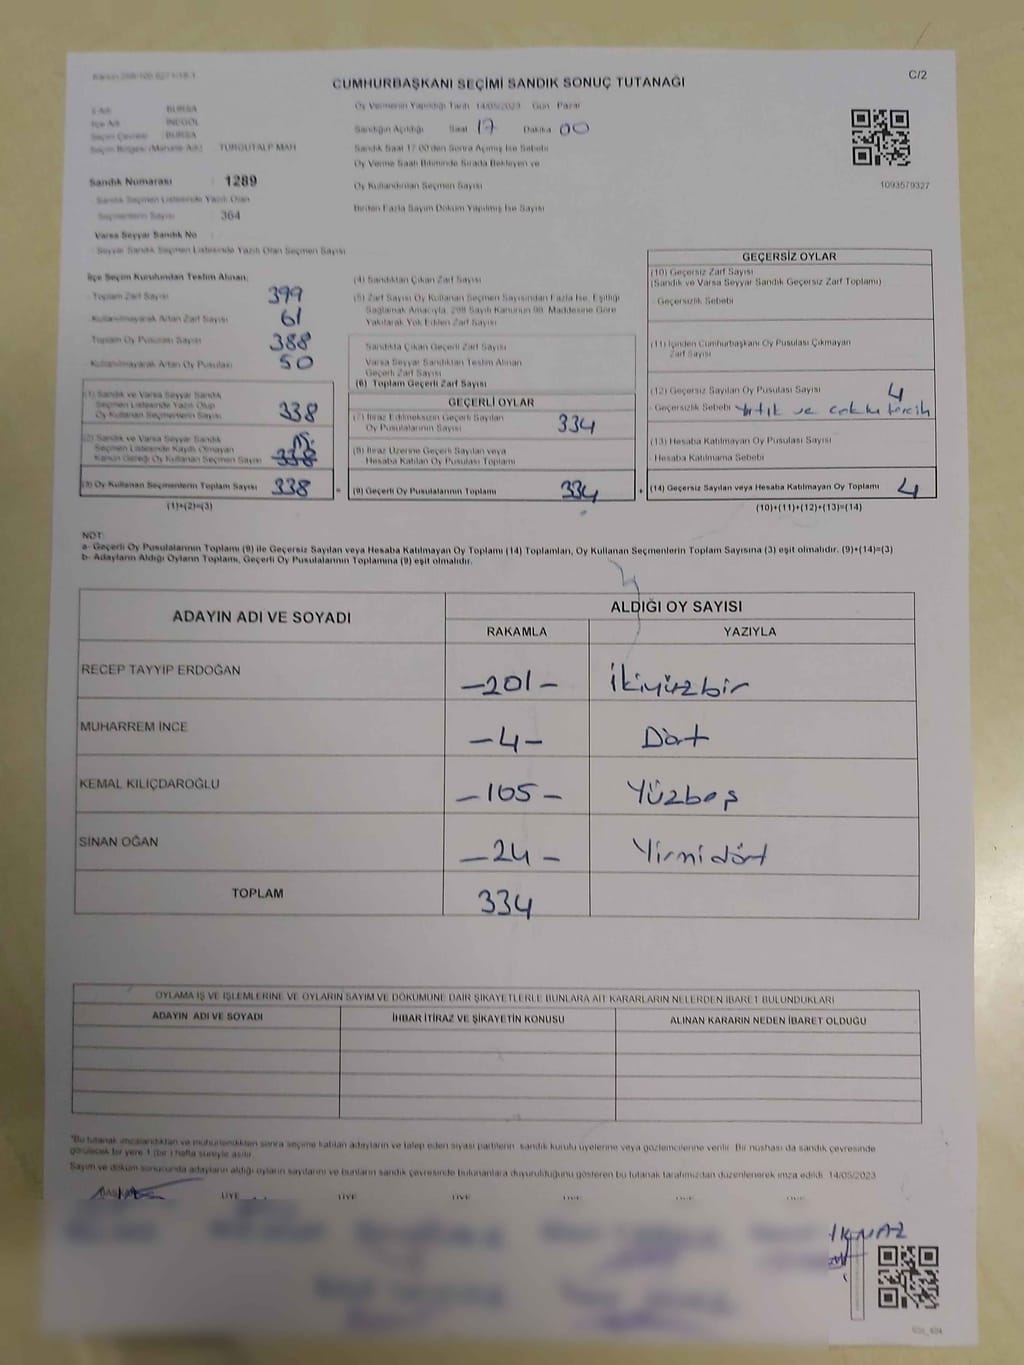 C/2
CUMHURBAŞKANI SEÇİMİ SANDIK SONUÇ TUTANAĞI
Oy Vermenin Yapıldığı Tarih 14/05/2023 Gün Pazar
BURSA
İlçe Adı İNEGÖL
Seçim Çevresi : BURSA
Seçim Bölgesi (Mahalle Adı) TURGUTALP MAH
Sandığın Açıldığı Saat 17 Dakika 00
Sandık Saat 17:00'den Sonra Açımış İse Sebebi
Oy Verme Saati Bitiminde Sırada Bekleyen ve
Oy Kullandırılan Seçmen Sayısı
Birden Fazla Sayım Döküm Yapılmış İse Sayısı
1093579327
Sandık Numarası : 1289
Sandık Seçmen Listesinde Yazılı Olan
Seçmenlerin Sayısı 364
Varsa Seyyar Sandık No
Seyyar Sandık Seçmen Listesinde Yazılı Olan Seçmen Sayısı
İlçe Seçim Kurulundan Teslim Alınan;
Toplam Zarf Sayısı 399
Kullanılmayarak Artan Zarf Sayısı 61
Toplam Oy Pusulası Sayısı 388
Kullanılmayarak Artan Oy Pusulası 50
(1) Sandık ve Varsa Seyyar Sandık
Seçmen Listesinde Yazılı Olup
Oy Kullanan Seçmenlerin Sayısı 338
(2) Sandık ve Varsa Seyyar Sandık
Seçmen Listesinde Kayıtlı Olmayan
Kanun Gereği Oy Kullanan Seçmen Sayısı 338
(3) Oy Kullanan Seçmenlerin Toplam Sayısı 338
(1)+(2)=(3)
(4) Sandıktan Çıkan Zarf Sayısı
(5) Zarf Sayısı Oy Kullanan Seçmen Sayısından Fazla İse, Eşitliği
Sağlamak Amacıyla, 298 Sayılı Kanunun 98. Maddesine Göre
Yakılarak Yok Edilen Zarf Sayısı
Sandıkta Çıkan Geçerli Zarf Sayısı
Varsa Seyyar Sandıktan Teslim Alınan
Geçerli Zarf Sayısı
(6) Toplam Geçerli Zarf Sayısı
GEÇERLİ OYLAR
(7) İtiraz Edilmeksizin Geçerli Sayılan
Oy Pusulalarının Sayısı 334
(8) İtiraz Üzerine Geçerli Sayılan veya
Hesaba Katılan Oy Pusulası Toplamı
= (9) Geçerli Oy Pusulalarının Toplamı 334
GEÇERSİZ OYLAR
(10) Geçersiz Zarf Sayısı
(Sandık ve Varsa Seyyar Sandık Geçersiz Zarf Toplamı)
Geçersizlik Sebebi
(11) İçinden Cumhurbaşkanı Oy Pusulası Çıkmayan
Zarf Sayısı
(12) Geçersiz Sayılan Oy Pusulası Sayısı 4
Geçersizlik Sebebi Yırtık ve çoklu tercih
(13) Hesaba Katılmayan Oy Pusulası Sayısı
Hesaba Katılmama Sebebi
+ (14) Geçersiz Sayılan veya Hesaba Katılmayan Oy Toplamı 4
(10)+(11)+(12)+(13)=(14)
NOT:
a- Geçerli Oy Pusulalarının Toplamı (9) ile Geçersiz Sayılan veya Hesaba Katılmayan Oy Toplamı (14) Toplamları, Oy Kullanan Seçmenlerin Toplam Sayısına (3) eşit olmalıdır. (9)+(14)=(3)
b- Adayların Aldığı Oyların Toplamı, Geçerli Oy Pusulalarının Toplamına (9) eşit olmalıdır.
ADAYIN ADI VE SOYADI ALDIĞI OY SAYISI
RAKAMLA YAZIYLA
RECEP TAYYİP ERDOĞAN -201- ikiyüzbir
MUHARREM İNCE -4- Dört
KEMAL KILIÇDAROĞLU -105- Yüzbeş
SİNAN OĞAN -24- Yirmidört
TOPLAM 334
OYLAMA İŞ VE İŞLEMLERİNE VE OYLARIN SAYIM VE DÖKÜMÜNE DAİR ŞİKAYETLERLE BUNLARA AİT KARARLARIN NELERDEN İBARET BULUNDUKLARI
ADAYIN ADI VE SOYADI İHBAR İTİRAZ VE ŞİKAYETİN KONUSU ALINAN KARARIN NEDEN İBARET OLDUĞU
"Bu tutanak imzalandıktan ve mühürlendikten sonra seçime katılan adayların ve talep eden siyasi partilerin sandık kurulu üyelerine veya gözlemcilerine verilir. Bir nüshası da sandık çevresinde
görülecek bir yere 1 (bir) hafta süreyle asılır.
Sayım ve döküm sonucunda adayların aldığı oyların sayılarını ve bunların sandık çevresinde bulunanlara duyurulduğunu gösteren bu tutanak tarafımızdan düzenlenerek imza edildi. 14/05/2023
BAŞKAN ÜYE ÜYE ÜYE ÜYE ÜYE ÜYE